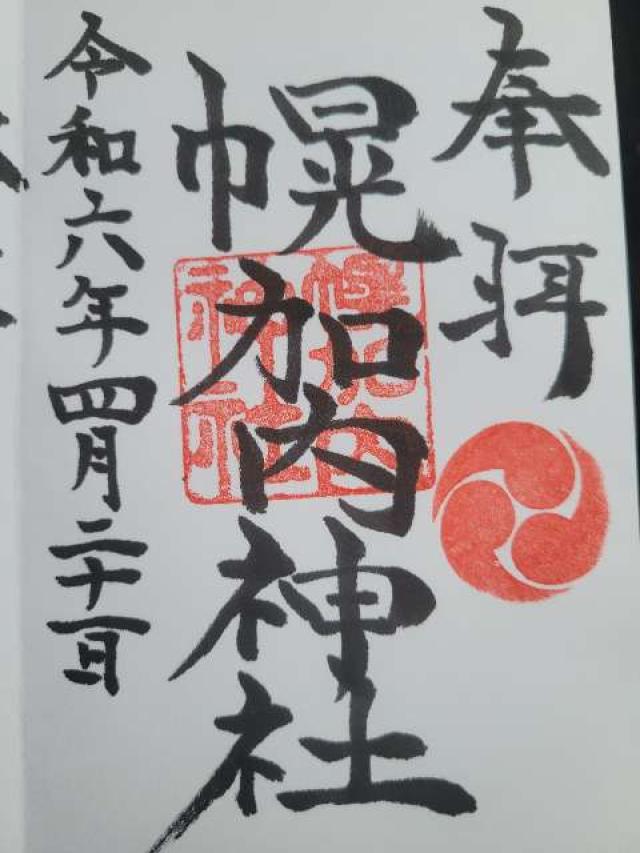 奉拝
幌加内神社
令和六年四月二十一日
幌加内
神社